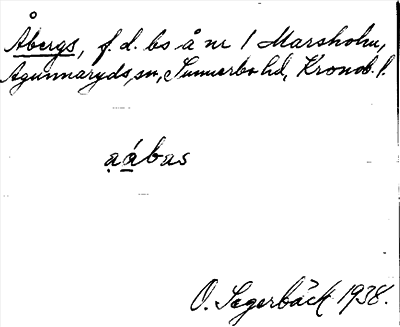 Åbergs, f. d. bs å nr 1 Marsholm,
Agunnaryds sn, Sunnerbo hd, Kronob. l.
ạábas
O. Segerbäck 1938.